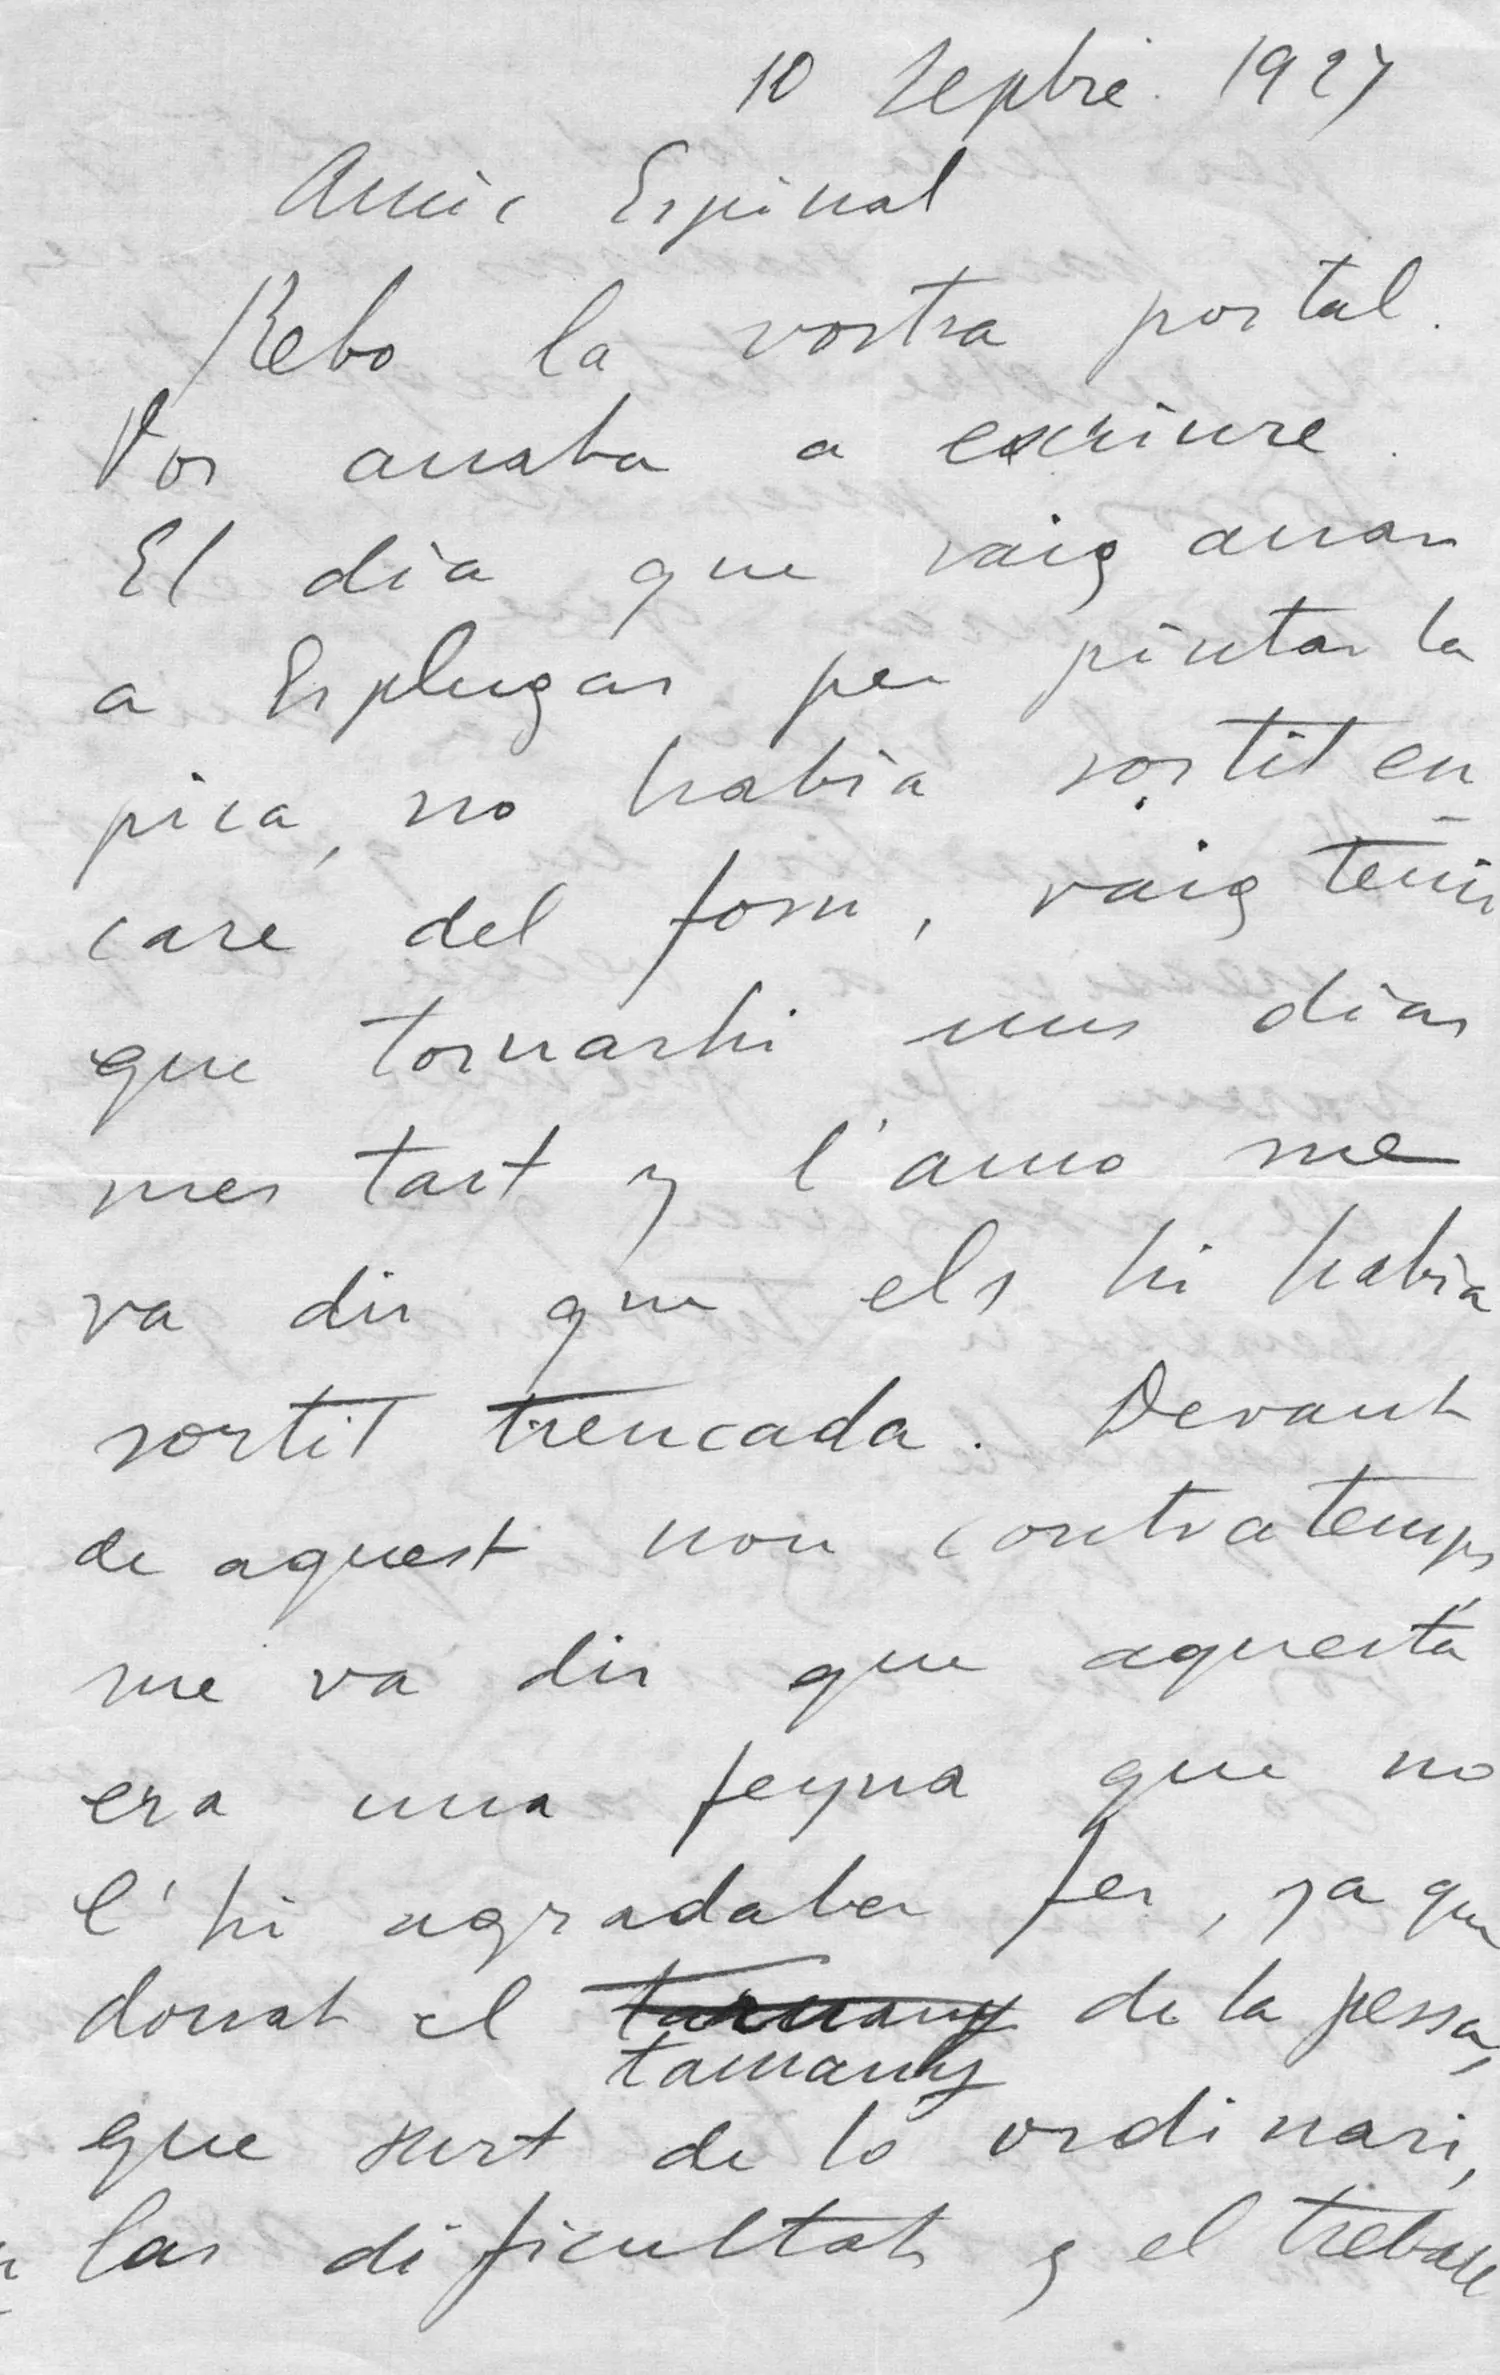 10 Sepbre. 1927
Amic Espinal
Rebo la vostra postal.
Vos anaba a escriure.
El dia que vaig anar
a Esplugas per pintar la
pica, no habia sortit en
care del forn, vaig tenir
que tornarhi uns dias
mes tart y l'amo me
va dir que els hi habia
sortit trencada. Devant
de aquest nou contratemps,
me va dir que aquesta
era una feyna que no
l'hi agradaba fer, ja que
donat el tamany de la pessa,
que surt de lo ordinari,
las dificultats y el treball